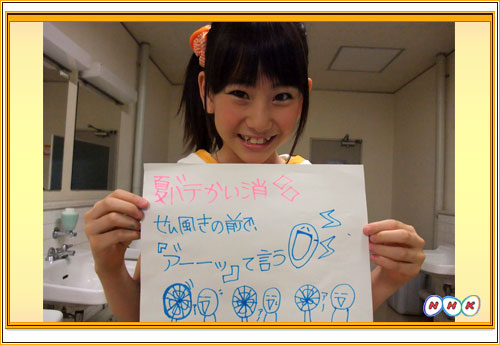 夏バテかい消
せん風きの前で、
『アーーッ』って言う
NHK